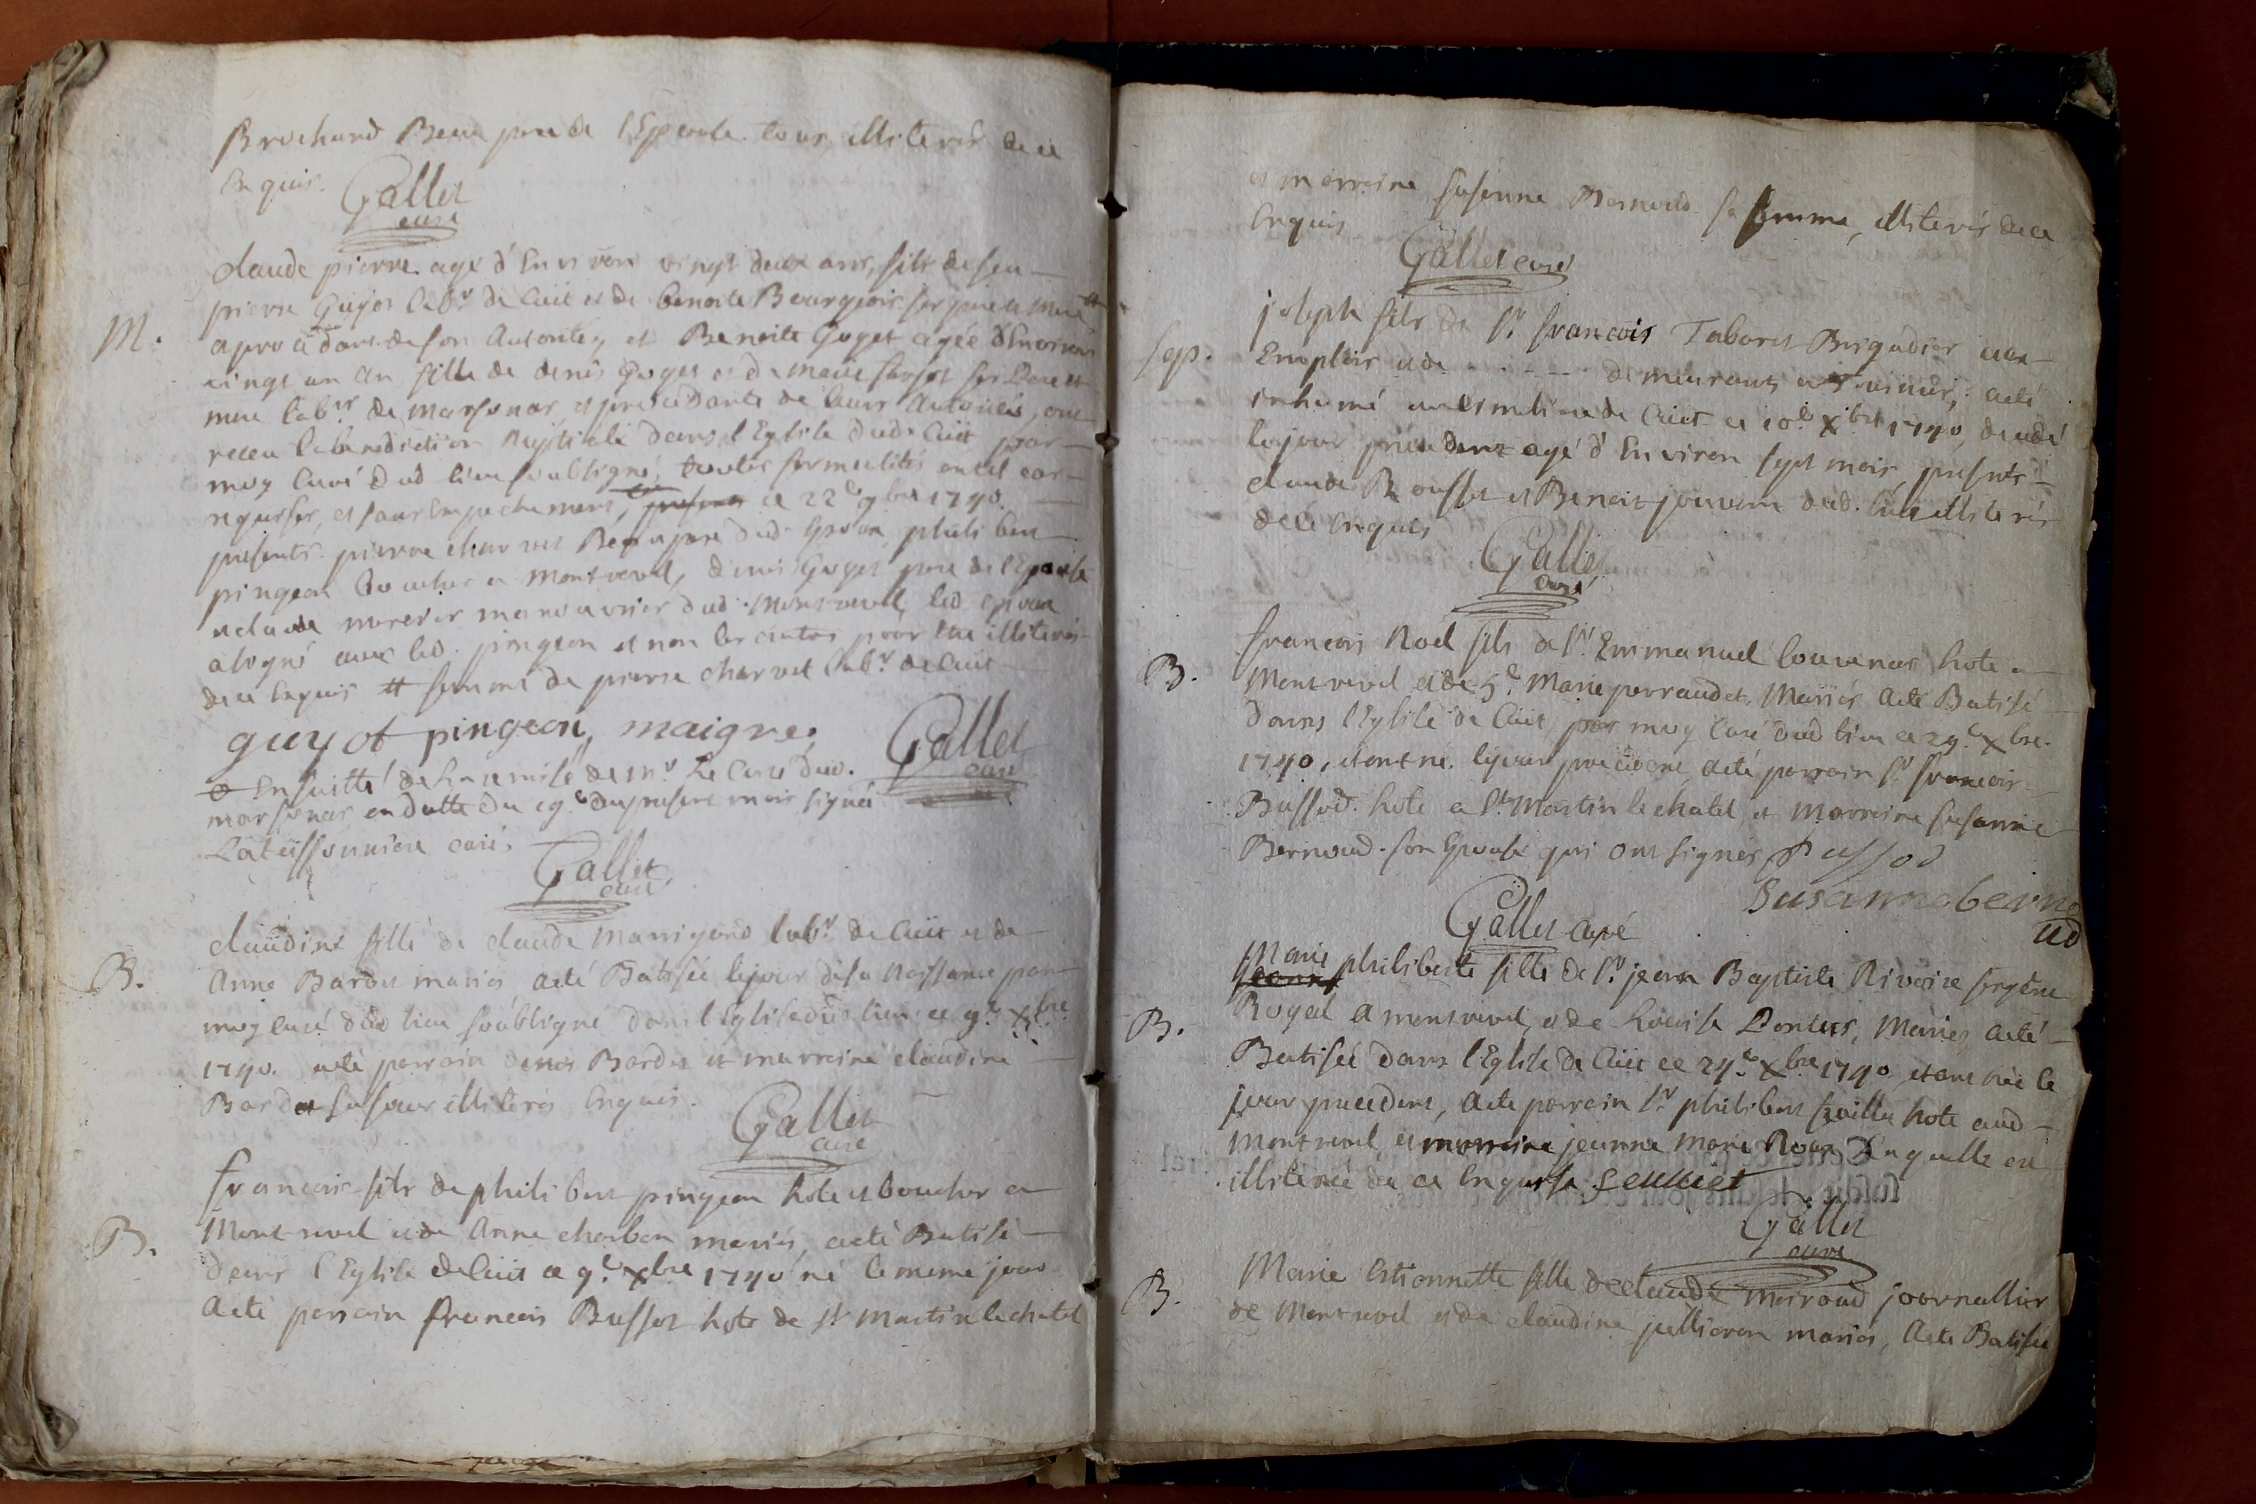 Brochand Beau pere de l'Epouse tous illiterés de ce
Enquis. Gallet
curé
claude pierre agé d'Environ vingt deux ans, fils de feu
pierre Guyot labr de Cuit et de benoite Bourgeois ses pere et mere #
M.
a procédant de son Autontéz et Benoite Goyet agée d'Environ
vingt un an fille de denis Goyet et de marie ses pere et
mere labrs de marsonas et procedante de leurs Autorités, ont
receu la benediction Nuptiale dans l'Eglise dud. Cuit par
moy Curé dud lieu soubsigné, toutes formalités en tel cas
requises, et sans Empechement, ce 22e 9bre 1740.
presents pierre charvet Beaupere dud. Epoux, philibert
pingeon Boucher a Montrevel, denis Goyet pere de l'Epouse
et claude manouvrier dud. Montrevel, led. epoux
a signé avec led. pingeon et non les autres pour être illiterés
de ce Enquis # femme de pierre charvet labr de Cuit
guyot pingeon, maigre, Gallet
curé
Ensuitte de la remise de mr Le Curé dud.
marsonas en datte du 19e du present mois signée
Lateissonniere curé.
Gallet
curé
claudine fille de claude Mangond labr de Cuit et de
B.
Anne Bardet mariés a eté Batisée le jour de sa Naissance par
moy curé dud lieu soubsigné dans l'Eglise dud. lieu ce 9e xbre
1740. a eté parrain denis Bardet et marraine claudine
Bardet sa soeur illiterés Enquis.
Gallet
curé
francois fils de philibert pingeon hote et boucher a
B.
Montrevel et de Anne charbon mariés, a eté Batisé
dans l'Eglise de Cuit ce 9e xbre 1740 né le meme jour
a eté parrain francois Bussod hote de st Martin le chatel
et marraine susanne Bernoud sa femme, illiterés de ce
Enquis
Gallet curé
joseph fils de sr francois Taboret Brigadier aux
Sep.
Emplois et de . . . . . demeurants a, a eté
inhumé au cimetiere de Cuit ce 10e xbre 1740, decedé
le jour precedent agé d'Environ sept mois, presents
claude Rousset et Benoit jouvent dud. lieu illiterés
de ce Enquis
Gallet
curé
francois Noel fils de sr Emmanuel Couvenas hote a
B.
Montrevel et de De Marie perraudet, Mariés a eté Batisé
dans l'Eglise de Cuit par moy Curé dud lieu ce 29e xbre
1740, etant né le jour precedent, a eté parrain sr francois
Bussod hote a st Martin le chatel, et Marraine susanne
Bernoud son Epouse qui ont signés Bussod
Susanne berno
ud
Gallet Curé
Marie
philiberte fille de sr jean Baptiste Rivoire sergent
B.
Royal a montrevel, et de Louise, Mariés a eté
Batisée dans l'Eglise de Cuit ce 29e xbre 1740 etant née le
jour precedent, a eté parrain sr philibert hote aud
Montrevel, et marraine jeanne Marie Roux laquelle est
illiterée de ce Enquise
Gallet
curé
Marie Etionnette fille de claude Moiroud journallier
B.
de Montrevel et de claudine pellieron mariés, a eté Batisée